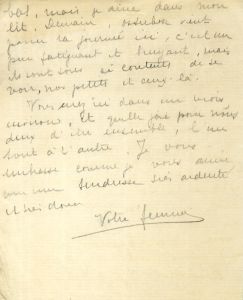 mais je dîne dans mon
lit. Demain, vient
passer la journée ici, c'est un
peu fatiguant et bruyant, mais
ils sont tous si contents de se
voir, nos petits et ceux-là.
Vous ici dans un mois
Et quelle joie pour nous
deux d'être ensemble, l'un
tout à l'autre. Je vous
comme je vous aime
tendresse très ardente
et très
Votre femme